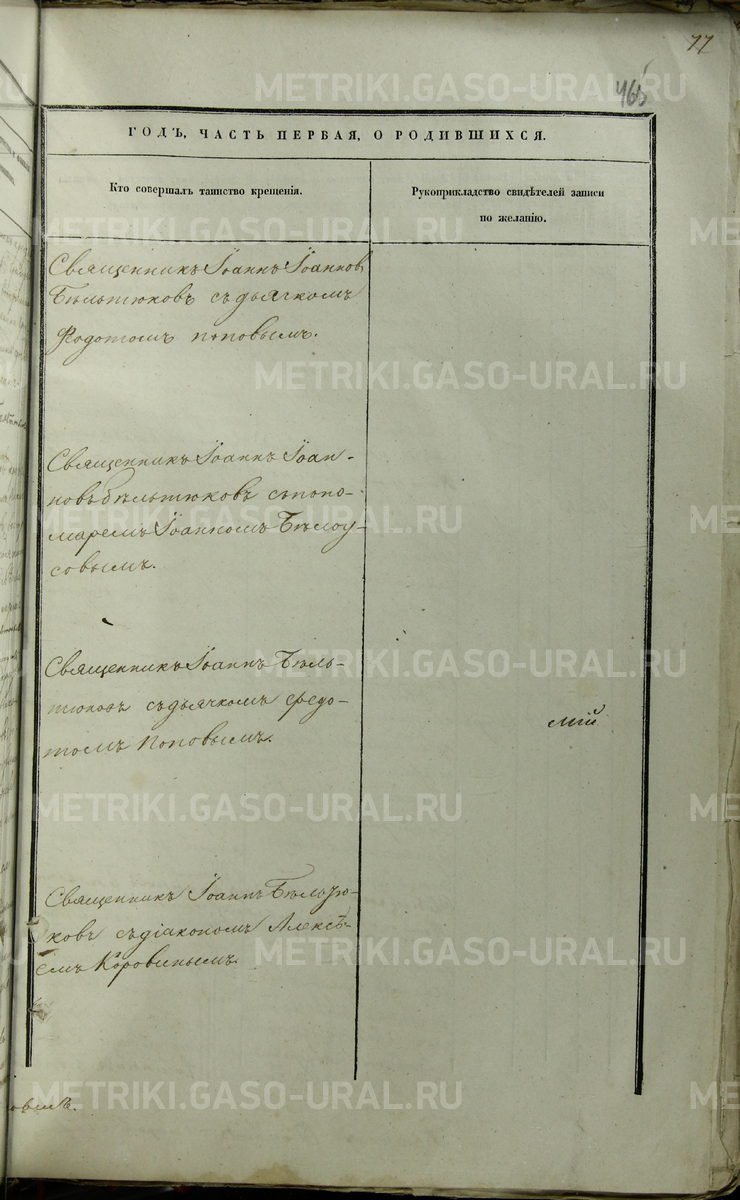 77
465
ГОДЪ, ЧАСТЬ ПЕРВАЯ, О РОДИВШИХСЯ.
Кто совершалъ таинство крещенія.
Рукоприкладство свидѣтелей записи
по желанію.
Священникъ Іоаннъ Іоаннов
Бѣльтюковъ съ дьячкомъ
Ѳедотомъ Поповымъ.
Священникъ Іоаннъ Іоан-
новъ Бѣльтюковъ съ поно-
маремъ Іоанномъ Бѣлоу-
совымъ.
Священникъ Іоаннъ Бѣль-
тюковъ съ дьячкомъ Ѳедо-
томъ Поповымъ.
мій
Священникъ Іоаннъ Бѣльтю-
ковъ съ діакономъ Алексѣ-
емъ Коровинымъ.
METRIKI.GASO-URAL.RU